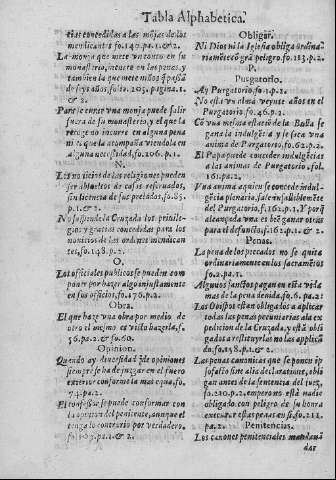 Tabla Alphabetica.
cias concedidas a las mõjas de los
mendicantes fo. 149. pa. 1. & 2.
La monja que mete vn tonto en su
monasterio, incurre en las penas, y
tambien la que mete niños q̃ passã
de seys años, folio. 205. pagina. 1.
& 2.
Para se curar vna monja puede salir
fuera de su monasterio, y el que la
recoge no incurre en alguna pena
ni los que la acompaña viendola en
alguna necessidad, fo. 206. p. 1.
N.
Los nouicios de las religiones pueden
ser absueltos de casos reseruados,
sin licencia de sus prelados, fo. 85.
p. 1. & 2.
No suspende la Cruzada los priuile-
gios y gracias concedidas para los
nouicios de las ordenes mendican
tes, fo. 148. p. 2.
O.
Los officiales publicos se pueden com
poner por hazer algo injustamente
en sus officios, fo. 176. p. 2.
Obra.
El que haze vna obra por medio de
otro el mismo es visto hazerla, fo.
56. pa. 2. & fo. 60.
Opinion.
Quando ay diuersidad de opiniones
siempre se ha de juzgar en el fuero
exterior conforme la mas equa, fo.
74. pa. 2.
El confessor se puede conformar con
la opinion del penitente, aunque el
tenga lo contrario por verdadero,
pa. 1. & 2.
Obligar.
Ni Dios ni la Iglesia obliga ordina-
riamẽte cõ grã peligro. fo. 183. p. 2.
P.
Purgatorio.
Ay Purgatorio fo. 1. p. 2.
No està vn alma veynte años en el
Purgatorio, fo. 46. p. 2.
Cõ vna mesma estaciõ de la Bulla se
gana la indulgẽcia y se saca vna
anima de Purgatorio, fo. 62. p. 2.
El Papa puede conceder indulgẽcias
a las animas de Purgatorio. fol.
161. pa. 2.
Vna anima a quien se concede indul-
gẽcia plenaria, sale infaliblemẽte
del Purgatorio, f. 162. p. 1. Y porq̃
alcançada vna es biẽ ganar otras
para el defuncto, f. 162. p. 1. & 2.
Penas.
La pena de los peccados no se quita
ordinariamente en los sacramẽtos
fo. 2. pa. 1.
Algunos sanctos pagan en esta vida
mas de la pena deuida, fo. 6. pa. 2.
Los Obispos estan obligados a aplicar
todas las penas pecuniarias ala ex
pedicion de la Cruzada, y està obli
gados a restituyrlas no las applicã
do, fo. 158. p. 1. & 2.
Las penas canonicas que se ponen ip
so facto sine alia declaratione, obli
gan antes de la sentencia del juez,
fo. 210. p. 2. emperò no està nadie
obligado con peligro de su honra
executar estas penas en si, fo. 211.
p. 2.
Penitencias.
Los canones penitenciales mandauã
dar